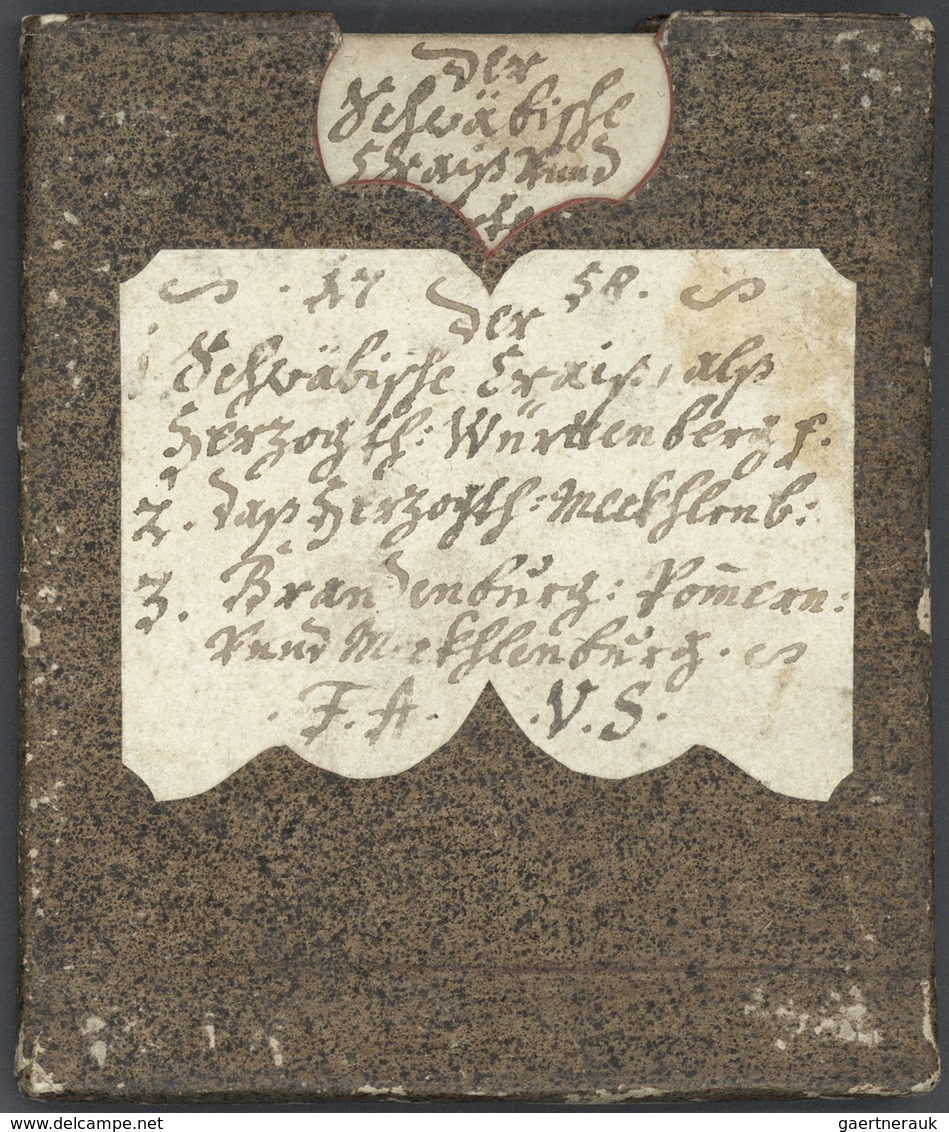 Der
Schwäbische
Craiß Vund
∽ . 17 58. ∽
Der
Schwäbische Craiß, alß
Herzogth: Württenberg p.
2. daß Herzogth: Meckhlenb:
3. Brandenburg: Pom̄ern:
Vund Meckhlenburg. ∽
. F. A. .V. S.
delcampe.net
gaertnerauk